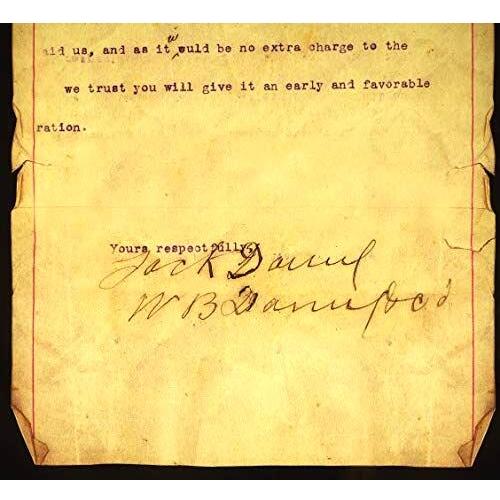 aid us, and as it would be no extra charge to the
we trust you will give it an early and favorable
ration.
Yours respectfully,
Jack Daniel
W B Daniel